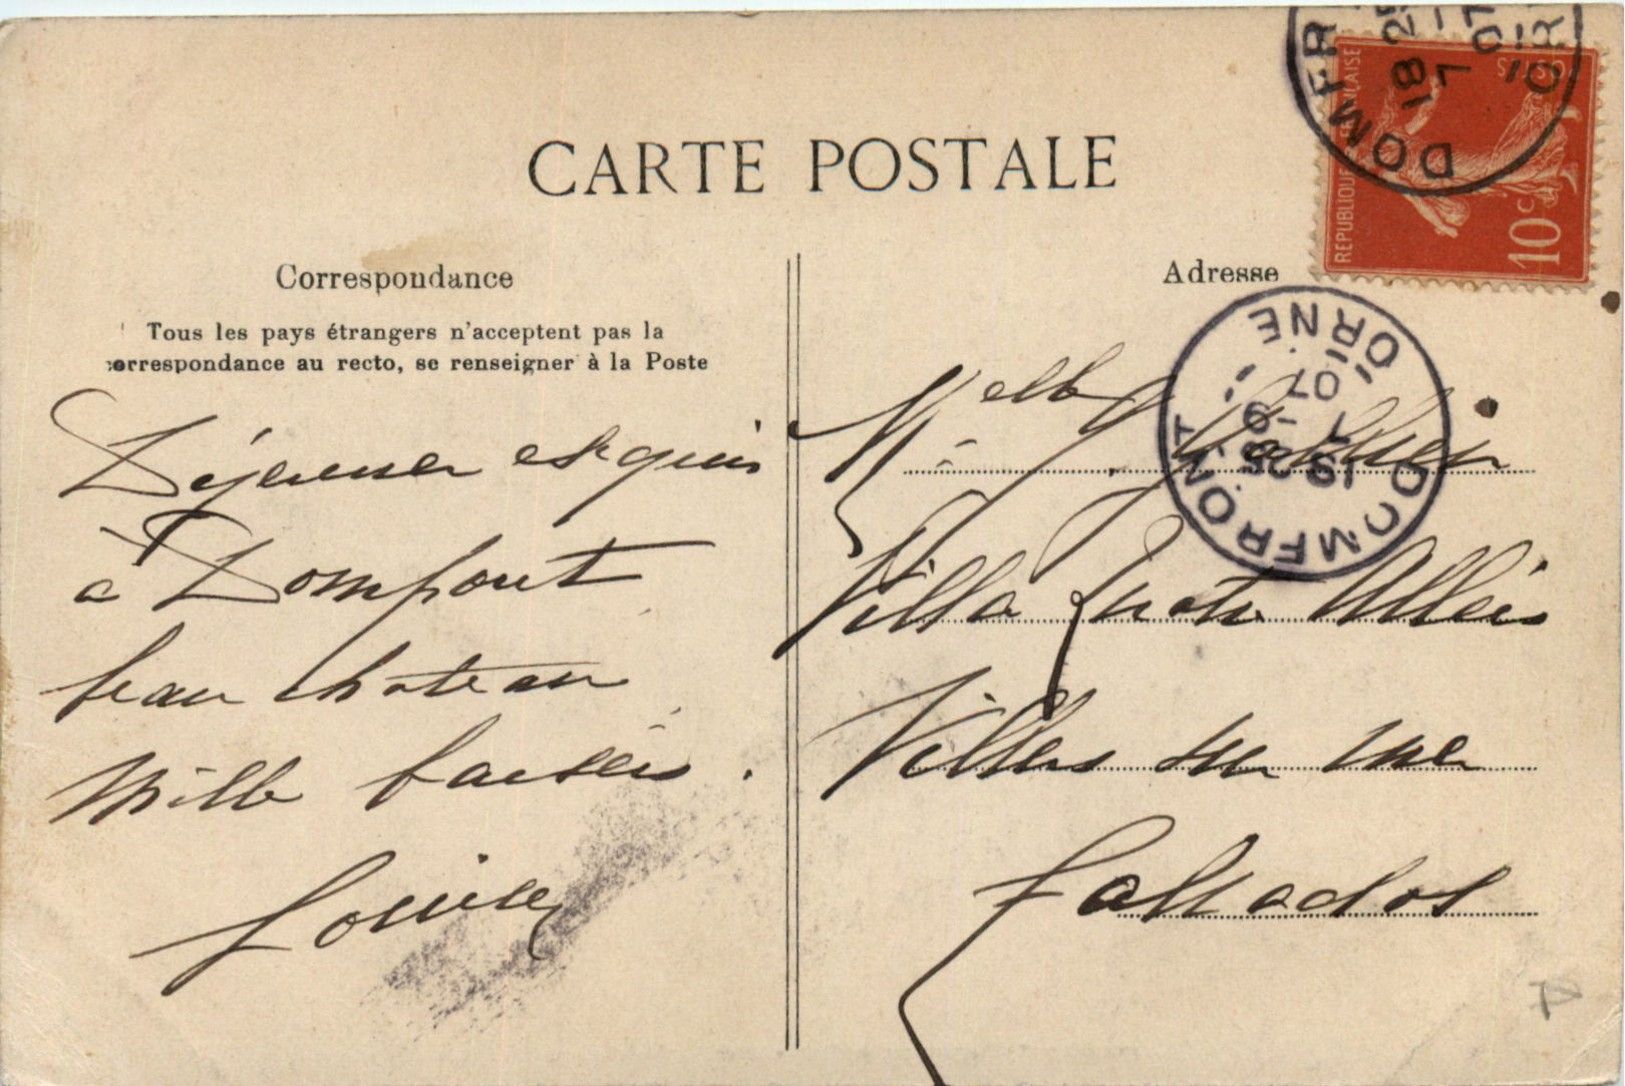 CARTE POSTALE
Correspondance
Tous les pays étrangers n'acceptent pas la
correspondance au recto, se renseigner à la Poste
Déjeuner exquis
à Domfront
beau chateau
Mille baisers.
Louise
Adresse
Melle
Villa Allées
Villers sur mer
Calvados
REPUBLIQUE FRANÇAISE
POSTES
10 c
DOMFRONT
18 25
7
07
ORNE
DOMFRONT
ORNE
07